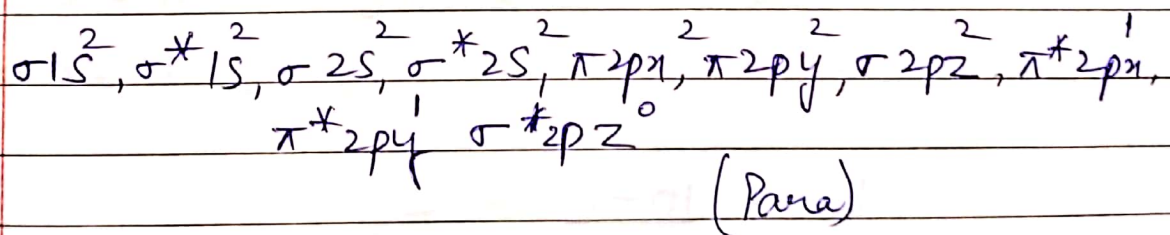 σ1s², σ*1s², σ2s², σ*2s², π2px², π2py², σ2pz², π*2px¹,
π*2py¹ σ*2pz⁰
(Para)